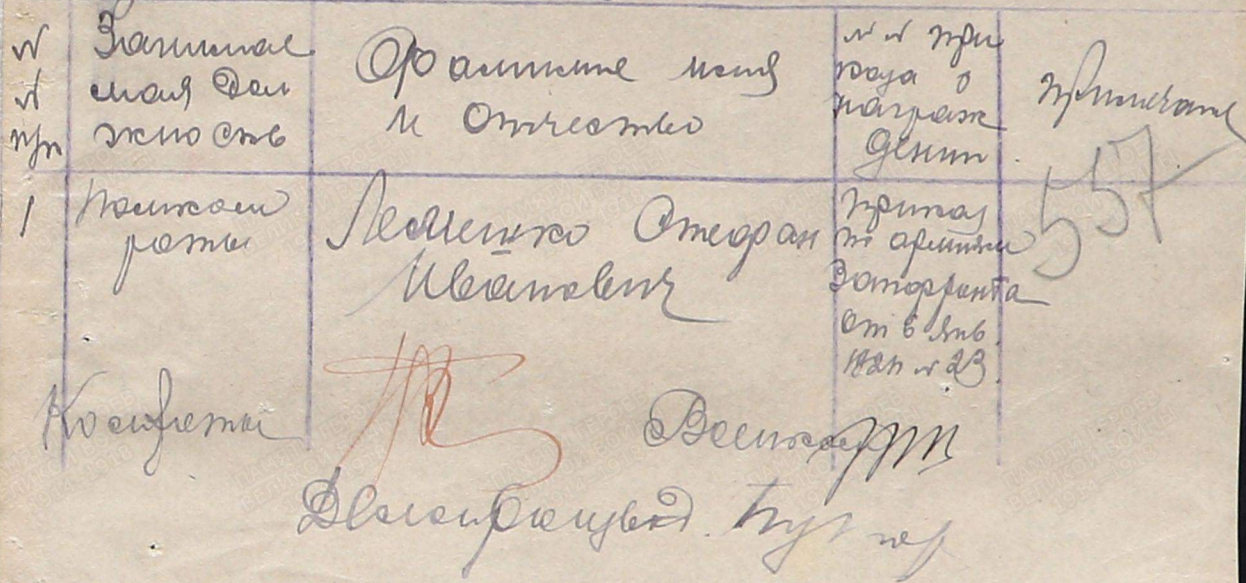 № № пр Занимае мая дол жность Фамилие имя и Отчество № № при каза о награж дении Примечание
1 Помком роты Лемешко Стефан Иванович Приказ по армиям Запфронта от 6 янв. 1921 № 23
557
Комроты
Военком